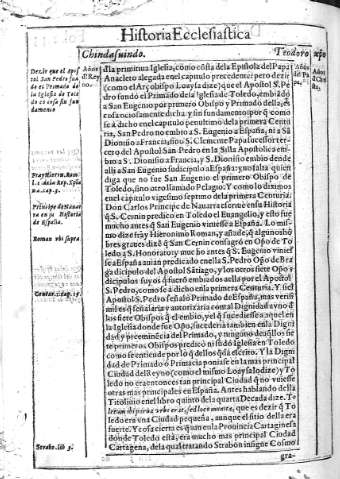 Historia Ecclesiastica
Chindasuindo.
Teodoro
Dezir que el apos
tol San Pedro fun
do el Primado de
la Iglesia de Tole
do es cosa sin fun
damento
dla primitiua Iglesia, como cõsta dela Epistola del Papa
Anacleto alegada en el capitulo precedente: pero dezir
(como el Arçobispo Loaysa dize) que el Apostol S. Pe
dro fondo el Primado de la Iglesia de Toledo, embiãdo
a San Eugenio por primero Obispo y Primado della, es
cosa ociosamente dicha y sin fundamento: porq̃ como
se à dicho en el capitulo penultimo dela primera Centu
ria, San Pedro no embio a S. Eugenio a España, ni a Sã
Dionisio a Francia, sino S. Clemente Papa sucessor ter-
cero del Apostol San Pedro en la Silla Apostolica em
bio a S. Dionisio a Francia, y S. Dionisio embio dende
alli a San Eugenio su discipulo a España: y no falta quien
diga que no fue San Eugenio el primero Obispo de
Toledo, sino otro llamado Pelagio: Y como lo diximos
en el capitulo vigesimo septimo dela primera Centuria:
Don Carlos Principe de Nauarra refiere en su Historia
q̃ S. Cernin predico en Toledo el Euangelio, y esto fue
mucho antes q̃ San Eugenio viniesse a España. Lo mis-
mo dize fray Hieronimo Roman, y añade,
bres graues dizē q̃ San Cernin consagrò en Obpo de To
ledo a S. Honorato y muchos antes q̃ S. Eugenio vinies
se a España auian predicado en ella S. Pedro Obpo de Bra
ga dicipulo del Apostol Sãtiago, y los otros siete Obpos
dicipulos suyos q̃ fuerõ embiados aella por el Apostol
S. Pedro, como se à dicho en la primera Centuria. Y si el
Apostol S. Pedro señalò Primado de España, mas verisi
mil es q̃ señalaria y autorizaria con tal Dignidad a vno d̃
los siete Obispos q̃ el embio,
la Iglesia donde fue Obpo, sucederia tambien en la Digni
dad y preeminēcia del Primado, y ninguno de aq̃llos sie
te primeros Obispos predicò ni residio en Toledo
como se entiende por lo q̃ dellos q̃da escrito. Y la Digni
dad de Primado o Primacia ponia se en la mas principal
Ciudad del Reyno (como el mismo Loaysa lo dize) y To
ledo no era entonces tan principal Ciudad q̃ no vuiesse
otras mas principales en España. Antes hablando della
Tito Liuio en el libro quinto dela quarta Decada dize. To
letum ibi parua vrbs erat, sed loco munito, que es dezir q̃ To
ledo era vna Ciudad pequeña, aunque el sitio della era
fuerte. Y cosa cierta es q̃ aun en la Prouincia Cartaginesa
donde Toledo està, era mucho mas principal Ciudad
Cartagena, de la qual tratando Strabon insigne Cosmo
gra-
Principe de Nauar
ra en su Historia
de España.
Roman vbi supra
Strabo. lib 3.